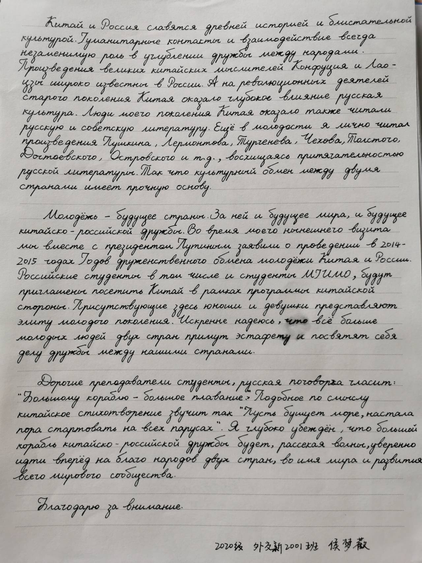 Китай и Россия славятся древней историей и блистательной
культурой. Гуманитарные контакты и взаимодействие всегда
незаменимую роль в углублении дружбы между народами.
Произведения великих китайских мыслителей Конфуция и Лао-
цзы широко известны в России. А на революционных деятелей
старого поколения Китая оказало глубокое влияние русская
культура. Люди моего поколения Китая оказало также читали
русскую и советскую литературу. Ещё в молодости я лично читал
произведения Пушкина, Лермонтова, Тургенева, Чехова, Толстого,
Достоевского, Островского и т.д., восхищаясь притягательностью
русской литературы. Так что культурный обмен между двумя
странами имеет прочную основу.
Молодёжь – будущее страны. За ней и будущее мира, и будущее
китайско-российской дружбы. Во время моего нынешнего визита
мы вместе с президентом Путиным заявили о проведении в 2014-
2015 годах Годов дружественного обмена молодёжи Китая и России.
Российские студенты в том числе и студенты МГИМО, будут
приглашены посетить Китай в рамках программы китайской
стороны. Присутствующие здесь юноши и девушки представляют
элиту молодого поколения. Искренне надеюсь, что всё больше
молодых людей двух стран примут эстафету и посвятят себя
делу дружбы между нашими странами.
Дорогие преподаватели студенты, русская поговорка гласит:
"Большому кораблю – большое плавание". Подобное по смыслу
китайское стихотворение звучит так "Пусть бушует море, настала
пора стартовать на всех парусах". Я глубоко убеждён, что большой
корабль китайско-российской дружбы будет, рассекая волны, уверенно
идти вперёд на благо народов двух стран, во имя мира и развития
всего мирового сообщества.
Благодарю за внимание.
2020级 外交新2001班 侯梦薇